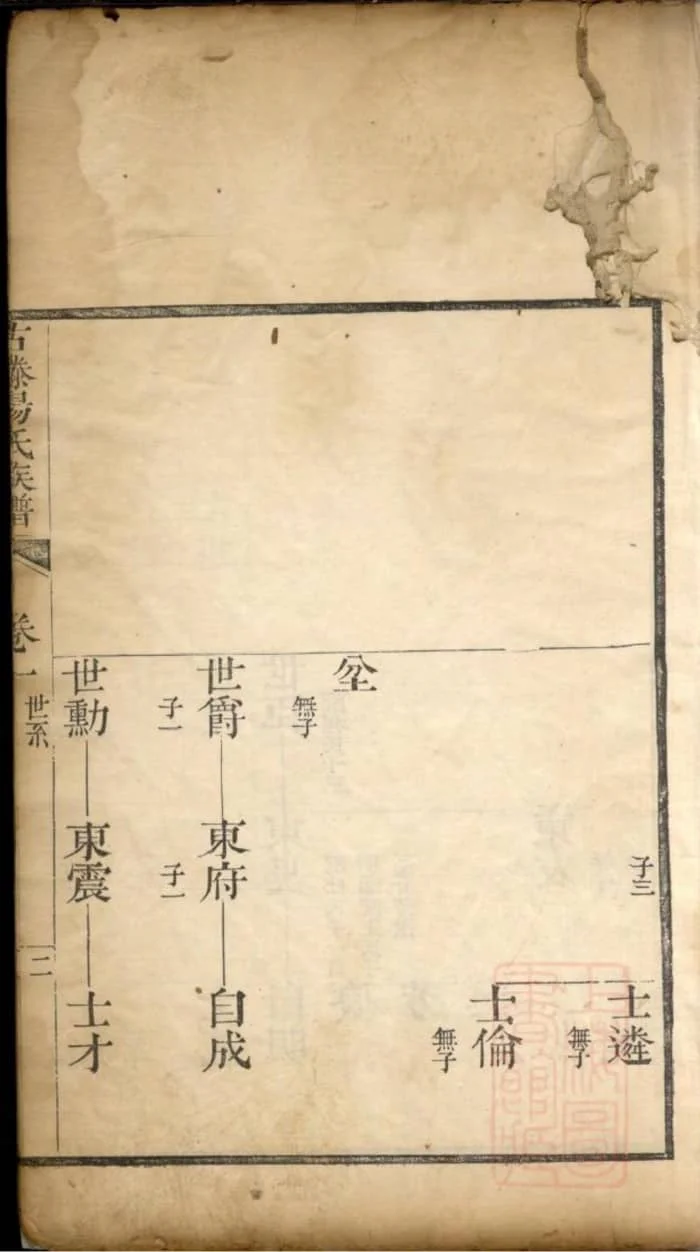 子三
士遴
無子
士倫
無子
坌
無子
世爵
子一
東府
子一
自成
世勳
東震
士才
古滕楊氏族譜
卷一
世系
二